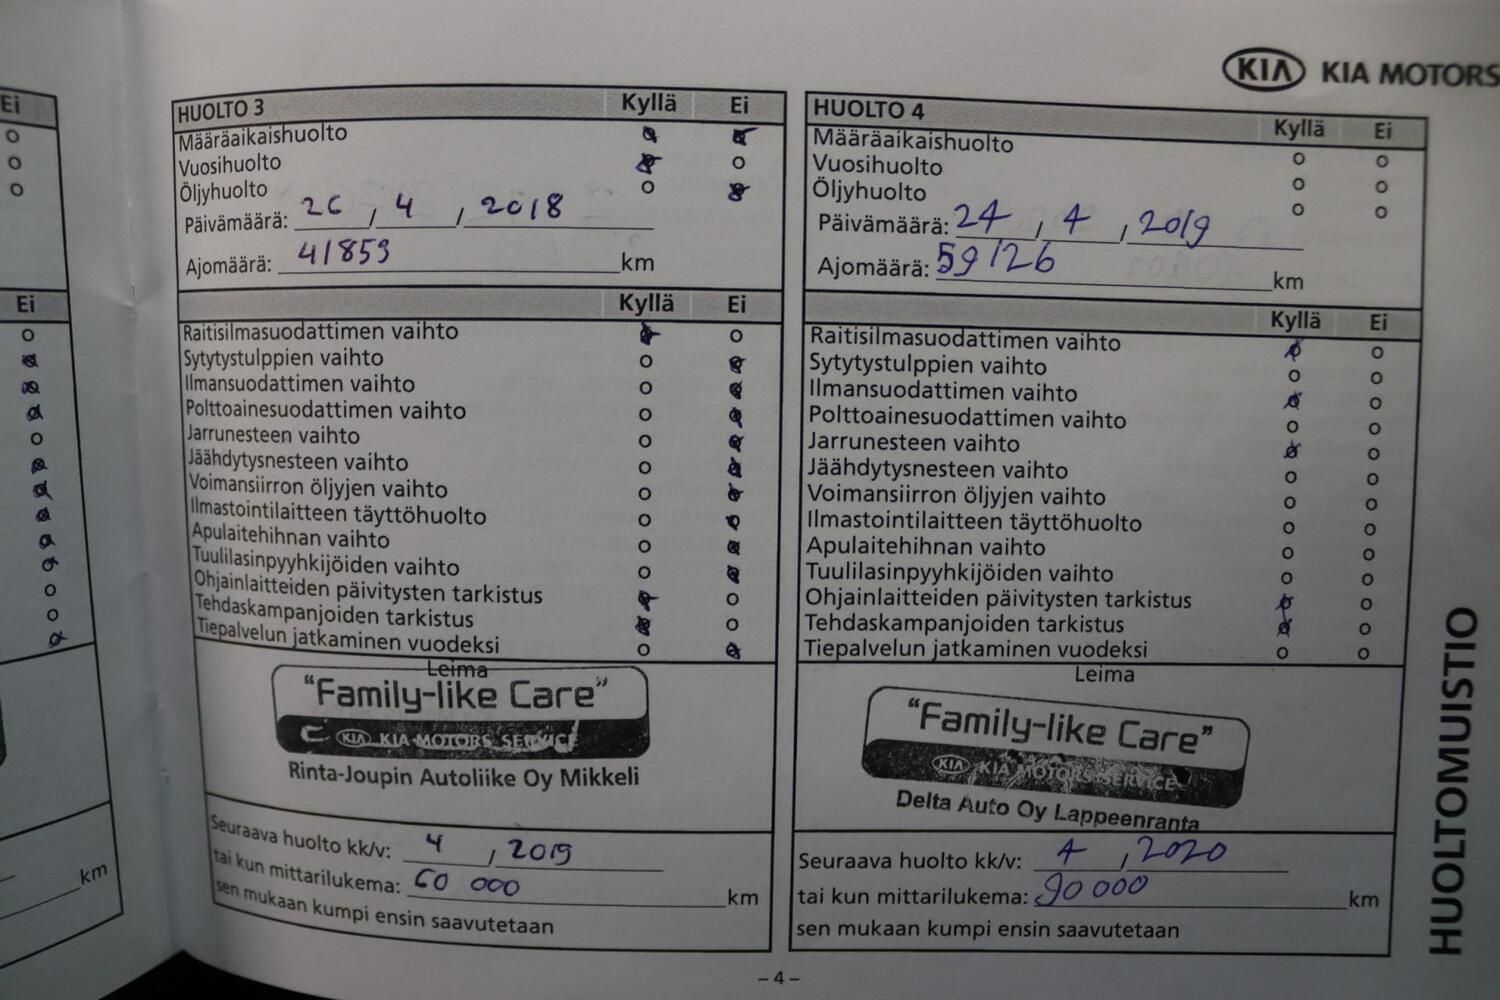 Ei
Ei
km
HUOLTO 3 Kyllä Ei
Määräaikaishuolto
Vuosihuolto
Öljyhuolto
Päivämäärä: 26 , 4 , 2018
Ajomäärä: 41859 km
Kyllä Ei
Raitisilmasuodattimen vaihto
Sytytystulppien vaihto
Ilmansuodattimen vaihto
Polttoainesuodattimen vaihto
Jarrunesteen vaihto
Jäähdytysnesteen vaihto
Voimansiirron öljyjen vaihto
Ilmastointilaitteen täyttöhuolto
Apulaitehihnan vaihto
Tuulilasinpyyhkijöiden vaihto
Ohjainlaitteiden päivitysten tarkistus
Tehdaskampanjoiden tarkistus
Tiepalvelun jatkaminen vuodeksi
Leima
"Family-like Care"
KIA KIA MOTORS SERVICE
Rinta-Joupin Autoliike Oy Mikkeli
Seuraava huolto kk/v: 4 , 2019
tai kun mittarilukema: 60 000 km
sen mukaan kumpi ensin saavutetaan
KIA KIA MOTORS
HUOLTO 4 Kyllä Ei
Määräaikaishuolto
Vuosihuolto
Öljyhuolto
Päivämäärä: 24 , 4 , 2019
Ajomäärä: 59126 km
Kyllä Ei
Raitisilmasuodattimen vaihto
Sytytystulppien vaihto
Ilmansuodattimen vaihto
Polttoainesuodattimen vaihto
Jarrunesteen vaihto
Jäähdytysnesteen vaihto
Voimansiirron öljyjen vaihto
Ilmastointilaitteen täyttöhuolto
Apulaitehihnan vaihto
Tuulilasinpyyhkijöiden vaihto
Ohjainlaitteiden päivitysten tarkistus
Tehdaskampanjoiden tarkistus
Tiepalvelun jatkaminen vuodeksi
Leima
"Family-like Care"
KIA KIA MOTORS SERVICE
Delta Auto Oy Lappeenranta
Seuraava huolto kk/v: 4 , 2020
tai kun mittarilukema: 90 000 km
sen mukaan kumpi ensin saavutetaan
HUOLTOMUISTIO
– 4 –